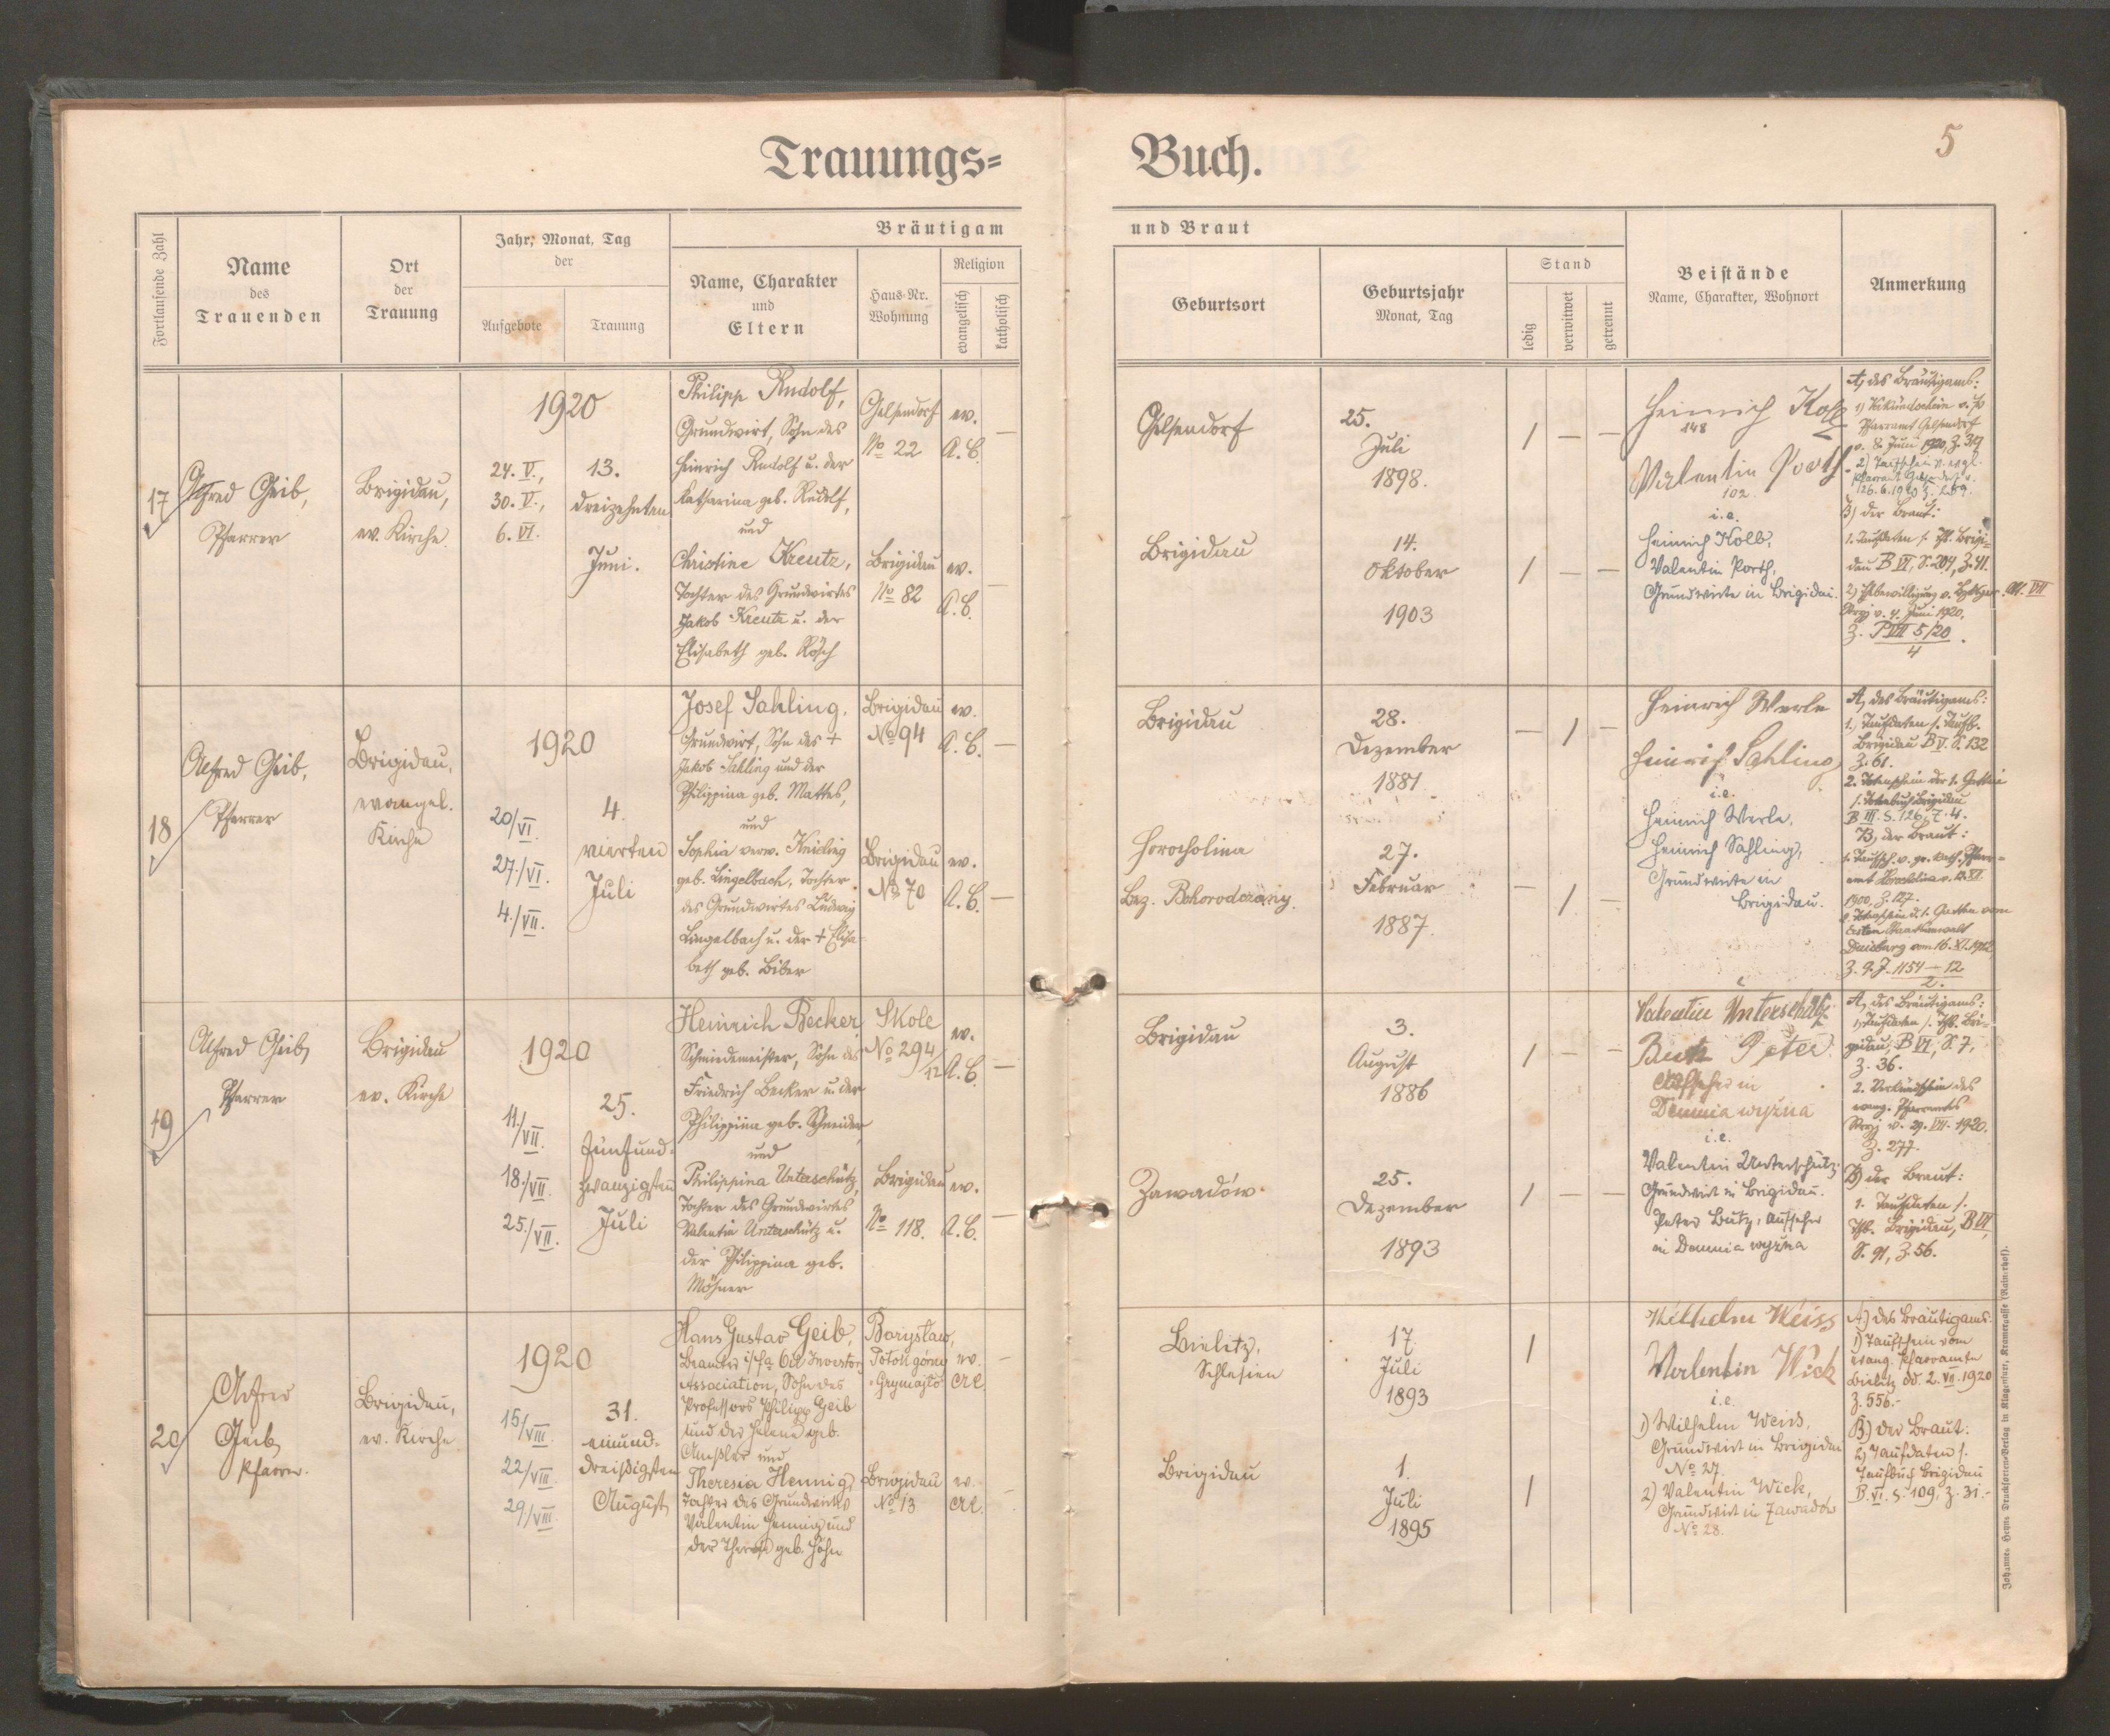 Trauungs=
Buch.
5
Fortlaufende Zahl
Name
des
Trauenden
Ort
der
Trauung
Jahr, Monat, Tag
der
Aufgebote
Trauung
Bräutigam
Name, Charakter
und
Eltern
Haus-Nr.
Wohnung
Religion
evangelisch
katholisch
und Braut
Geburtsort
Geburtsjahr
Monat, Tag
Stand
ledig
verwitwet
getrennt
Beistände
Name, Charakter, Wohnort
Anmerkung
17
Alfred Geib,
Pfarrer
Brigidau,
ev. Kirche
1920
24. V.,
30. V.,
6. VI.
13.
dreizehnten
Juni.
Philipp Rudolf,
Grundwirt, Sohn des
Heinrich Rudolf u. der
Katharina geb. Rudolf,
und
Christine Kreutz,
Tochter des Grundwirtes
Jakob Kreutz u. der
Elisabeth geb. Rösch
Gelsendorf
No 22
ev.
A. C. —
Brigidau
No 82
ev.
A. C. —
Gelsendorf
25.
Juli
1898.
1 — —
Brigidau
14.
Oktober
1903
1 — —
Heinrich Kolb
148
Valentin Porth.
102
i. e.
Heinrich Kolb,
Valentin Porth,
Grundwirte in Brigidau.
A, des Bräutigams:
Pfarramt Gelsendorf
v. 8. Juni 1920, Z. 319
B) der Braut:
1. Taufdaten s. Tfb. Brigi=
dau B VI, S. 204, Z. 41.
Stryj v. 4. Juni 1920,
Z. P VII 5/20
4
18
Alfred Geib,
Pfarrer
Brigidau,
evangel.
Kirche
1920
20/VI.
27./VI.
4./VII.
4.
vierten
Juli
Josef Sahling,
Grundwirt, Sohn des +
Jakob Sahling und der
Philippina geb. Mattes,
und
Sophia verw. Kneiling
geb. Lingelbach, Tochter
des Grundwirtes Ludwig
Lingelbach u. der + Elisa=
beth geb. Biber
Brigidau
No 94
ev.
A. C. —
Brigidau
No 70
ev.
A. C. —
Brigidau
28.
Dezember
1881
— 1 —
Horocholina
Bez. Bohorodczany.
27.
Februar
1887.
— 1 —
Heinrich Werle
Heinrich Sahling
i. e.
Heinrich Werle,
Heinrich Sahling,
Grundwirte in
Brigidau.
A, des Bräutigams:
1., Taufdaten s. Taufb.
Brigidau B V. S. 132
Z. 61.
2. Totenschein der 1. Gattin
s. Totenbuch Brigidau
B III. S. 126, Z. 4.
B, der Braut:
1900, Z. 127.
Duisburg vom 16. XI. 1912
Z. 9. J. 1154 — 12
2.
19
Alfred Geib
Pfarrer
Brigidau
ev. Kirche
1920
11./VII.
18./VII.
25./VII.
25.
fünfund=
zwanzigsten
Juli
Heinrich Becker,
Schmiedemeister, Sohn des
Friedrich Becker u. der
Philippina geb. Schneider,
und
Philippina Unterschütz,
Tochter des Grundwirtes
Valentin Unterschütz u.
der Philippina geb.
Mösner
Skole
No 294/12
ev.
A. C. —
Brigidau
No 118.
ev.
A. C. —
Brigidau
3.
August
1886
1 — —
Zawadów.
25.
Dezember
1893
1 — —
Valentin Unterschütz
Butz Peter
Aufseher in
Demnia wyżna
i. e.
Valentin Unterschütz,
Grundwirt in Brigidau.
Peter Butz, Aufseher
in Demnia wyżna
A, des Bräutigams:
1, Taufdaten s. Tfb. Bri=
gidau, B VI, S. 7,
Z. 36.
2. Verkündschein des
evang. Pfarramtes
Stryj v. 29. VII. 1920.
Z. 277.
B) der Braut:
1. Taufdaten s.
Tfb. Brigidau, B VI,
S. 91, Z. 56.
20
Alfred
Geib
Pfarrer.
Brigidau,
ev. Kirche
1920
15/VIII.
22/VIII.
29/VIII.
31.
einund=
dreißigsten
August
Hans Gustav Geib,
Association, Sohn des
Professors Philipp Geib
und der Helene geb.
und
Theresia Hennig,
Tochter des Grundwirts
Valentin Hennig und
der Theresia geb. Höhn
Borysław,
Potok górny
ev. —
AC.
Brigidau
No 13.
ev. —
AC.
Bielitz,
Schlesien
17.
Juli
1893
1
Brigidau
1.
Juli
1895
1
Wilhelm Weiss
Valentin Wick
i. e.
1) Wilhelm Weiss,
Grundwirt in Brigidau
No 27.
2) Valentin Wick,
Grundwirt in Zawadów
No 28.
A.) des Bräutigams:
1) Taufschein vom
evang. Pfarramte
Bielitz dd. 2. VII. 1920
Z. 556.-
B.) der Braut:
Taufdaten s.
Taufbuch Brigidau
B. VI. S. 109. Z. 31.-
Johannes Heyns Drucksorten-Verlag in Klagenfurt, Kramergasse